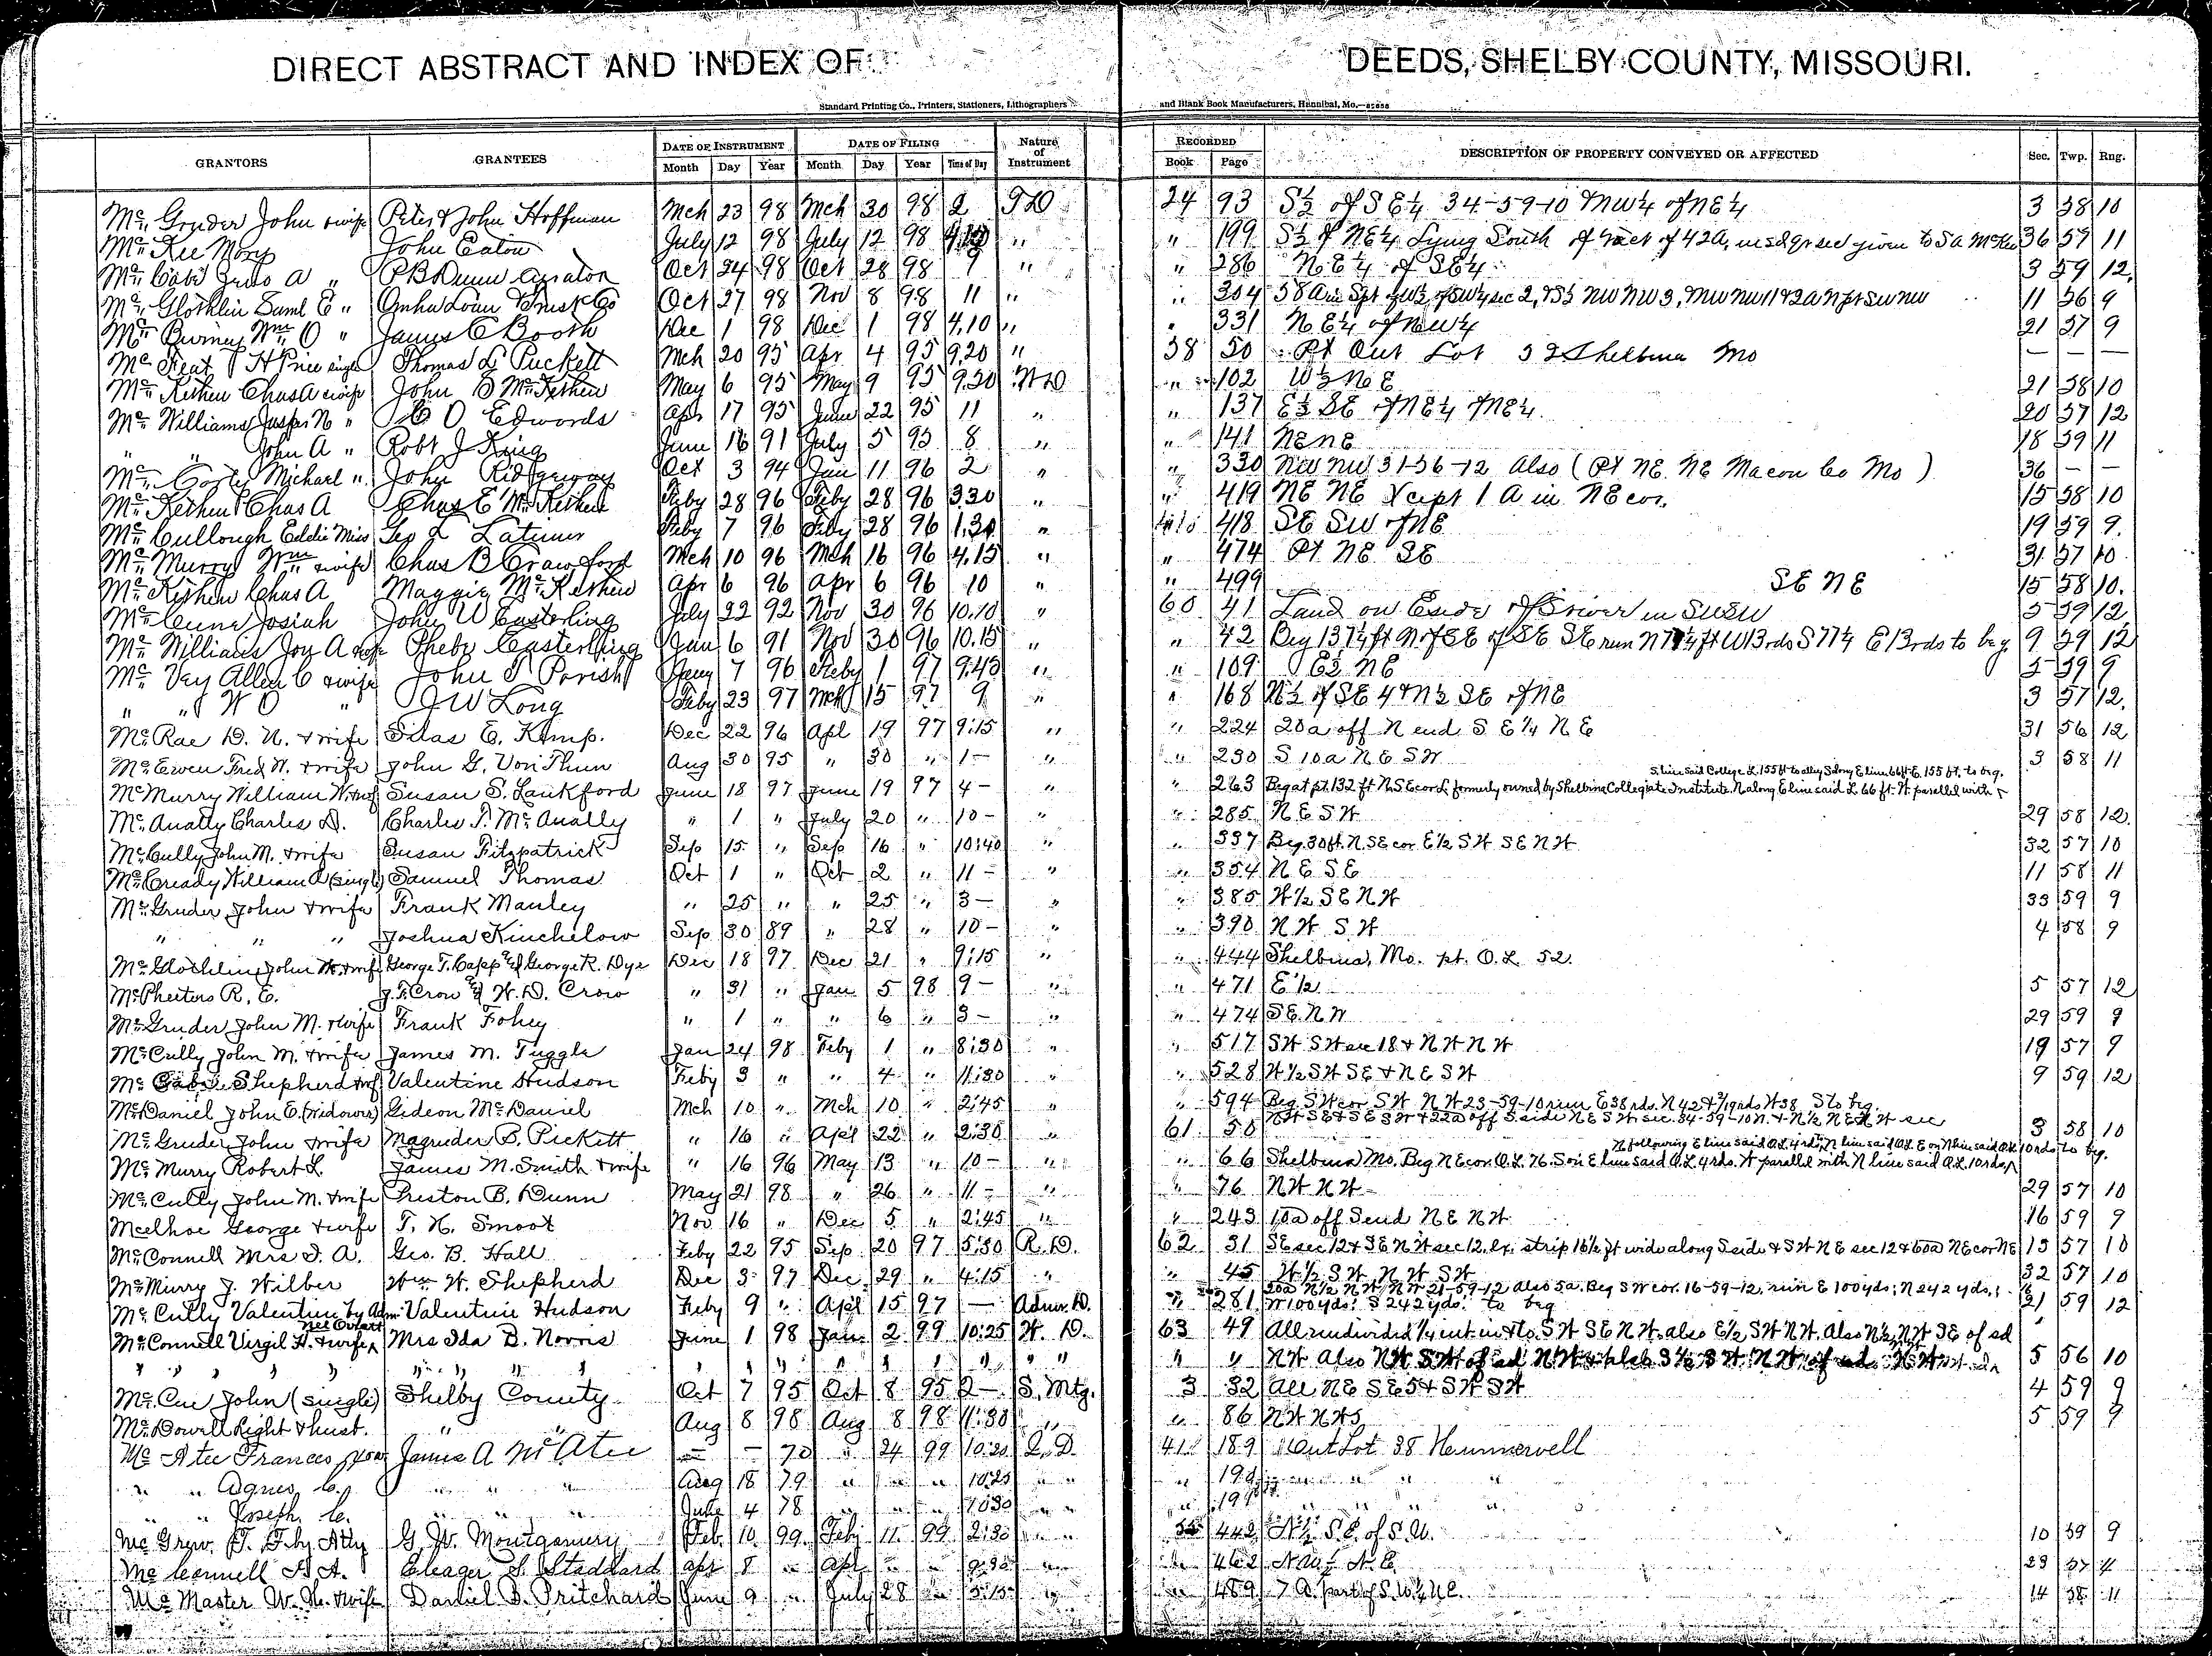 DIRECT ABSTRACT AND INDEX OF DEEDS, SHELBY COUNTY, MISSOURI.
Standard Printing Co., Printers, Stationers, Lithographers and Blank Book Manufacturers, Hannibal, Mo.
GRANTORS GRANTEES DATE OF INSTRUMENT DATE OF FILING Nature of Instrument RECORDED DESCRIPTION OF PROPERTY CONVEYED OR AFFECTED Sec. Twp. Rng.
Month Day Year Month Day Year Time of Day Book Page
Mc Gruder John & wife Peter & John Hoffman Mch 23 98 Mch 30 98 2 TD 24 93 S½ of SE¼ 34-59-10 & NW¼ of NE¼ 3 58 10
Mc Kee Mary John Eaton July 12 98 July 12 98 " " 199 S½ of NE¼ Lying South of tract of 42A, in sd qr sec given to 36 57 11
Mc " P B Dunn Curator Oct 24 98 Oct 28 98 " " 286 NE¼ of SE¼ 3 59 12
Mc Glothlin Saml E " Omha Loan Trust Co Oct 27 98 Nov 8 98 11 " " 304 11 56 9
Mc Wm O " James C Booth Dec 1 98 Dec 1 98 4.10 " " 331 NE¼ of NW¼ 21 57 9
Mc H Price single Thomas L Puckett Mch 20 95 Apr 4 95 9.20 " 58 50 Pt Out Lot 52 Shelbina Mo — — —
Mc Kethen Chas A & wife John O McKethen May 6 95 May 9 95 9.20 WD " 102 W½ NE 21 58 10
Mc Williams Jasper N " C O Edwards Apr 17 95 June 22 95 11 " " 137 E½ SE of NE¼ of NE¼ 20 57 12
" " John A " Robt J King June 16 91 July 5 95 8 " " 141 NE NE 18 59 11
Mc Carty Michael " John Ridgeway Oct 3 94 Jan 11 96 2 " " 330 NW NW 31-56-12 Also (Pt NE NE Macon Co Mo) 36 — —
Mc Kethen Chas A Chas E McKethen Feby 28 96 Feby 28 96 3.30 " " 419 NE NE Xcept 1 A in NE cor. 15 58 10
Mc Cullough Eddie Miss Geo L Latimer Feby 7 96 Feby 28 96 1.30 " 418 SE SW of NE 19 59 9
Mc Murry Wm & wife Chas B Crawford Mch 10 96 Mch 16 96 4.15 " " 474 Pt NE SE 31 57 10
Mc Kethen Chas A Maggie McKethen Apr 6 96 Apr 6 96 10 " " 499 SE NE 15 58 10
Mc Cune Josiah John W Easterling July 22 92 Nov 30 96 10.10 " 60 41 Land on E side of river in SW SW 5 59 12
Mc Williams Joy A Pheby Easterling Jan 6 91 Nov 30 96 10.15 " " 42 Beg 137¼ ft N of SE of SE SE run N 77¼ ft W 13rds S 77¼ E 13rds to beg 9 59 12
Mc Vey Allen C & wife John T Parish Jany 7 96 Feby 1 97 9.45 " " 109 E½ NE 5 59 9
" " W O " J W Long Feby 23 97 Mch 15 97 9 " " 168 N½ of SE 4 & N½ SE of NE 3 57 12
McRae D. N. & wife Silas E. Kemp. Dec 22 96 Apl 19 97 9:15 " " 224 20a off N end S E¼ N E 31 56 12
McEwen Fred W. & wife John G. Von Thun Aug 30 95 " 30 " 1— " " 230 S 10a N E S W 3 58 11
McMurry William W. & wf Susan S. Lankford June 18 97 June 19 97 4— " " 263 Beg at pt. 132 ft N. S E cor L. formerly owned by Shelbina Collegiate Institute. N along E line said L 66 ft. W. parallel with
S line said College L 155 ft to alley S along E line 66 ft E. 155 ft. to beg.
McAnally Charles D. Charles T. McAnally " 1 " July 20 " 10— " " 285 N E S W 29 58 12
McCully John M. & wife Susan Fitzpatrick Sep 15 " Sep 16 " 10:40 " " 337 Beg. 30 ft. N. SE cor E½ S W S E N W 32 57 10
McCready William A (single) Samuel Thomas Oct 1 " Oct 2 " 11— " " 354 N E S E 11 58 11
McGruder John & wife Frank Manley " 25 " " 25 " 3— " " 385 W½ S E N W 33 59 9
" " " Joshua Kinchelow Sep 30 89 " 28 " 10— " " 390 N W S W 4 58 9
McGlothlin John W. & wife George T. Capp & George R. Dye Dec 18 97 Dec 21 " 9:15 " " 444 Shelbina, Mo. pt. O.L 52.
McPheeters R. E. J. F. Crow & W. D. Crow " 31 " Jan 5 98 9— " " 471 E½ 5 57 12
McGruder John M. & wife Frank Fohey " 1 " " 6 " 3— " " 474 S E. N W 29 59 9
McCully John M. & wife James M. Tuggle Jan 24 98 Feby 1 " 8:30 " " 517 S W S W sec 18 & N W N W 19 57 9
Mc Shepherd & wf Valentine Hudson Feby 3 " " 4 " 11:30 " " 528 W½ S W S E & N E S W 9 59 12
McDaniel John E. (widower) Gideon McDaniel Mch 10 " Mch 10 " 2:45 " " 594 Beg S W cor S W N W 23-59-10 run E 38 rds. N 42 & rds W 38 S to beg.
McGruder John & wife Magruder B. Pickett " 16 " Apl 22 " 2:30 " 61 50 N W S E & S E S W & 22a off S side N E S W sec. 34-59-10 & N½ N E N W sec 3 58 10
McMurry Robert L. James M. Smith & wife " 16 96 May 13 " 10— " " 66 Shelbina Mo. Beg N E cor. O.L. 76. S on E line said O.L 4 rds. W parallel with N line said O.L 10 rds,
N following E line said O.L 4 rds N line said O.L. E on N line said O.L 10 rds to beg.
McCully John M. & wife Preston B. Dunn May 21 98 " 26 " 11— " " 76 N W N W 29 57 10
McElhoe George & wife T. H. Smoot Nov 16 " Dec 5 " 2:45 " " 243 10a off S end N E N W 16 59 9
McConnell Mrs I. A. Geo. B. Hall Feby 22 95 Sep 20 97 5:30 R. D. 62 31 S E sec 12 & S E N W sec 12, Ex. strip 16½ ft wide along S side & S W N E sec 12 & 60a N E cor N E 13 57 10
McMurry J. Wilber Wm W. Shepherd Dec 3 97 Dec 29 " 4:15 " " 45 W½ S W N W S W 32 57 10
McCully Valentine by Adm. Valentine Hudson Feby 9 " Apl 15 97 — Admr. D. " 281 20a N½ N W N W 21-59-12 also 5a. Beg S W cor. 16-59-12, run E 100 yds; N 242 yds,
W 100 yds; S 242 yds. to beg 21 59 12
McConnell Virgil H. & wife Mrs Ida B. Norris June 1 98 Jan 2 99 10:25 W. D. 63 49 All undivided ¼ int in & to S W S E N W. also E½ S W N W. Also N½ N W S E of sd
" " " " " " " " " " " " " " " N W Also N W S W of sd 5 56 10
McCue John (single) Shelby County Oct 7 95 Oct 8 95 2— S. Mtg. 3 32 All N E S E 5 & S W S W 4 59 9
McDowell Right & husb. " " Aug 8 98 Aug 8 98 11:30 " " 86 5 59 9
Mc Atee Frances James A McAtee — — 70 " 24 99 10:20 Q. D. 41 189 Out Lot 38 Hunnewell
" " Agnes C. " " " Aug 18 79 " " " 10:25 " " " " "
" " Joseph C. " " " June 4 78 " " " 10:30 " " " " "
Mc Grew J. F. by Atty G. W. Montgomery Feb. 10 99 Feb 11 99 2:30 " " 442 N½ S.E. of S.W. 10 59 9
Mc Connell I. A. Eleager S. Staddard Apr 8 " Apr " " " " 462 N.E.
Mc Master W. N. & wife Daniel B. Pritchard June 9 " July 28 " 3:15 " " 489 7 A. part of S.W.¼ N.E. 14 58 11